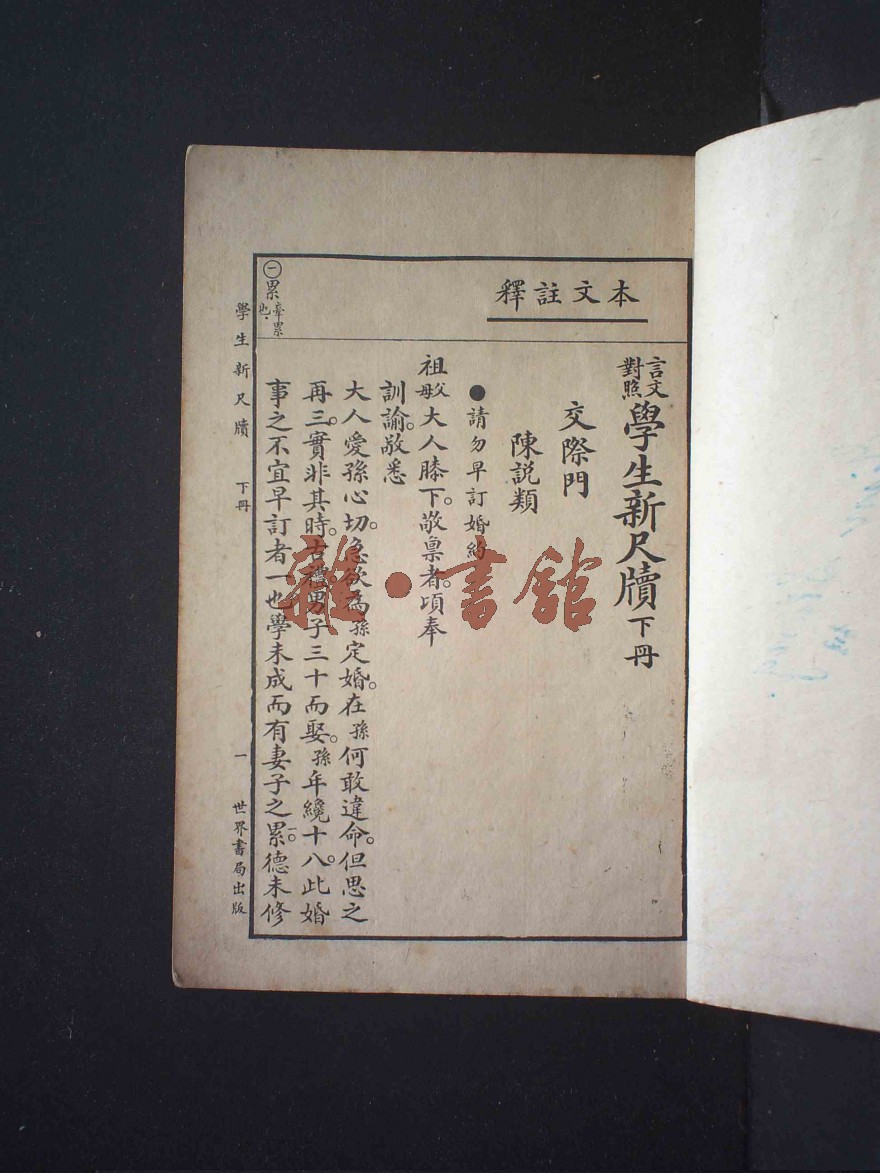 本文註釋
言文對照 學生新尺牘 下冊
交際門
陳說類
●請勿早訂婚約
祖父母大人膝下。敬稟者。頃奉
訓諭。敬悉
大人愛孫心切。急欲為孫定婚。在孫何敢違命。但思之
再三。實非其時。古禮男子三十而娶。孫年纔十八。此婚
事之不宜早訂者一也學未成而有妻子之累。㊀德未修
㊀累 牽累也。
學生新尺牘 下冊 一 世界書局出版
雜·書館